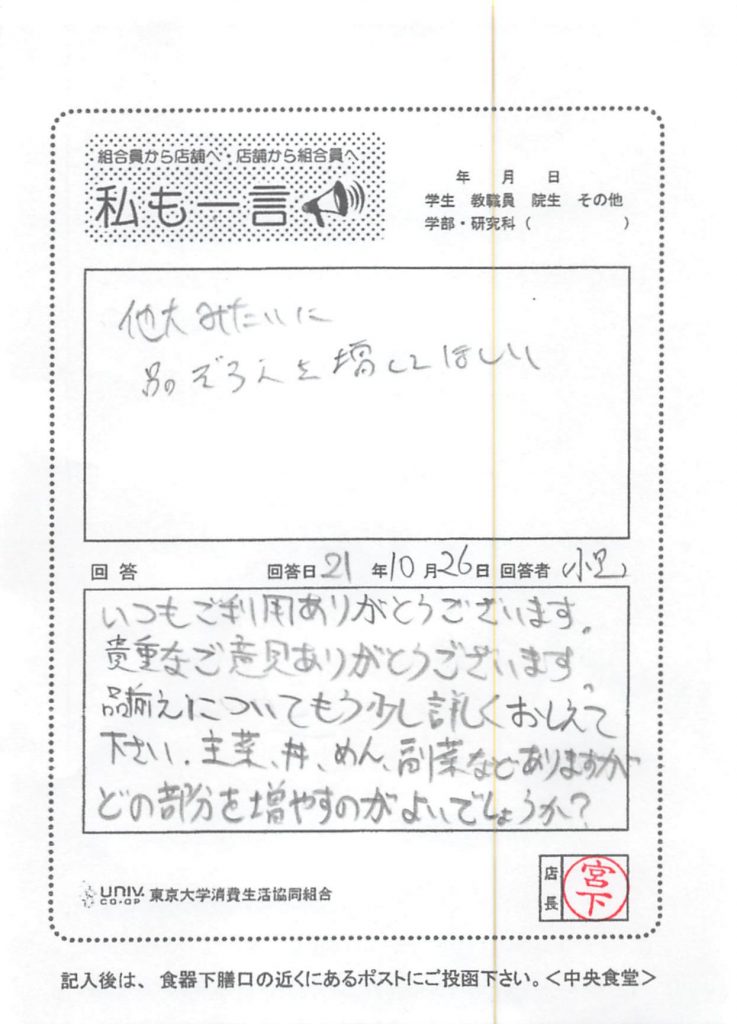 組合員から店舗へ・店舗から組合員へ
私も一言
年 月 日
学生 教職員 院生 その他
学部・研究科( )
他大みたいに
品ぞろえを増してほしい
回答 回答日 21 年 10 月 26 日 回答者 (小里)
いつもご利用ありがとうございます。
貴重なご意見ありがとうございます。
品揃えについてもう少し詳しくおしえて
下さい。主菜、丼、めん、副菜などありますが
どの部分を増やすのがよいでしょうか?
UNIV. CO-OP 東京大学消費生活協同組合
店長 宮下
記入後は、食器下膳口の近くにあるポストにご投函下さい。<中央食堂>